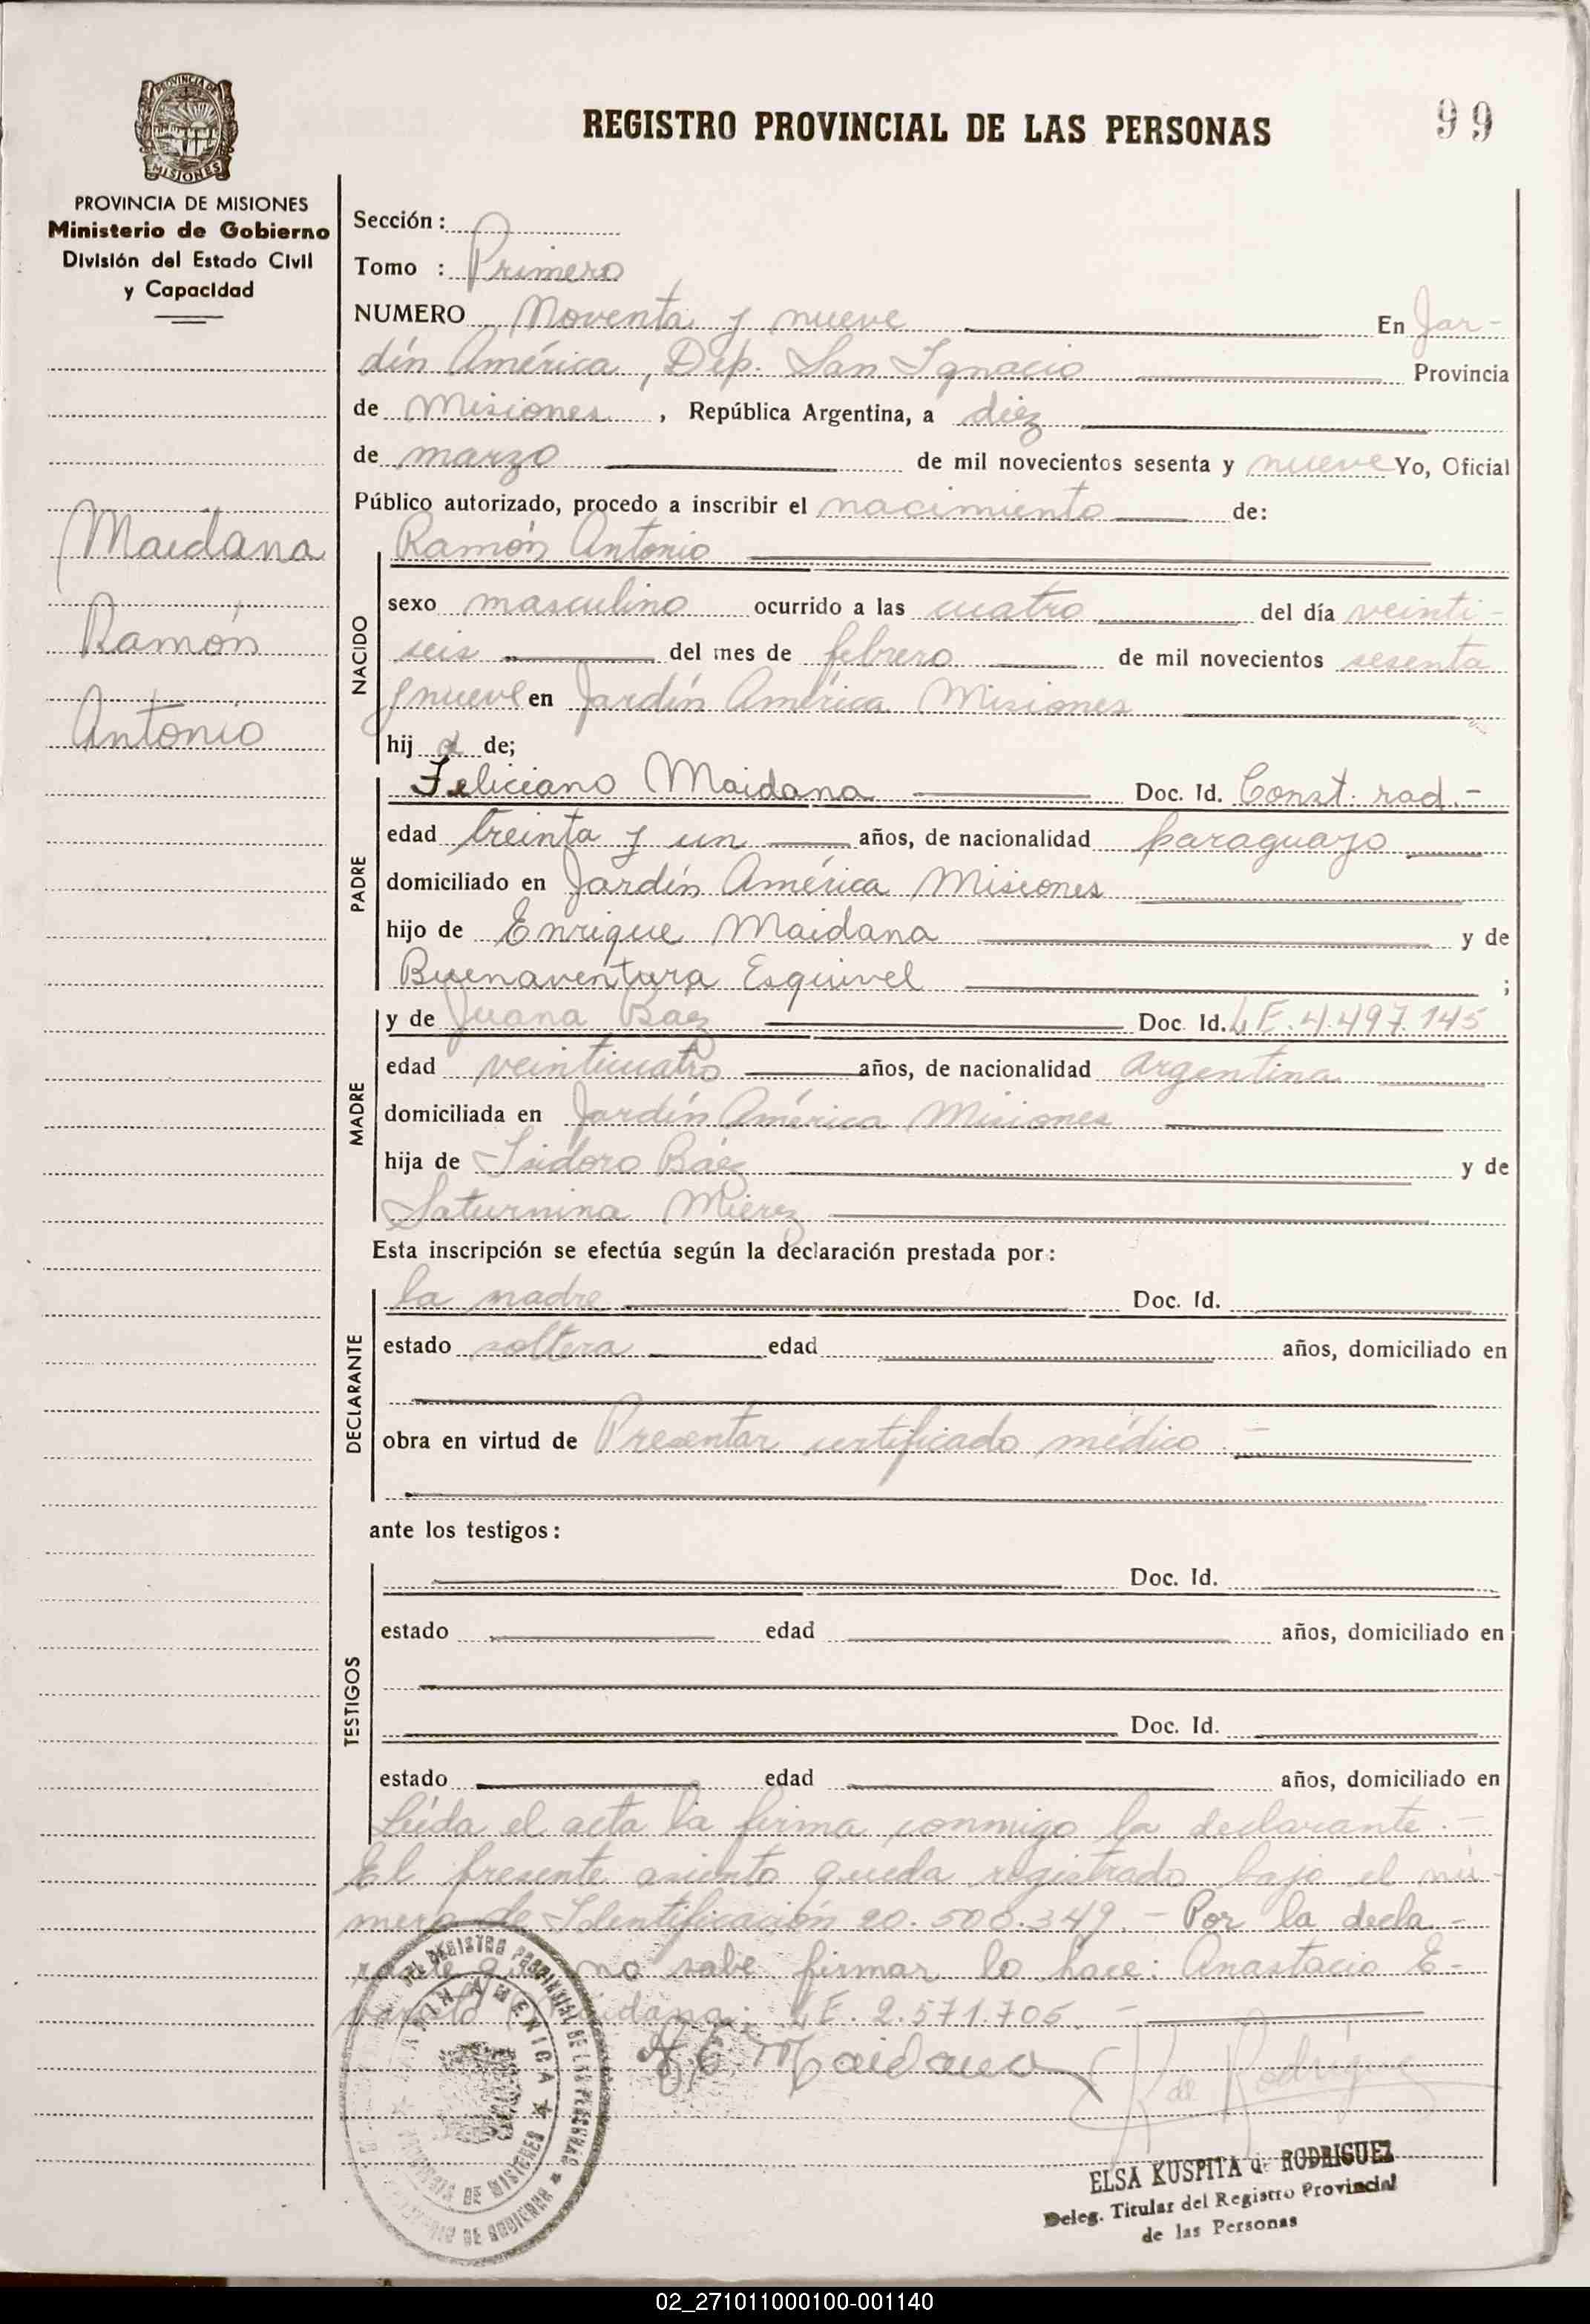 REGISTRO PROVINCIAL DE LAS PERSONAS
99
PROVINCIA DE MISIONES
MISIONES
PROVINCIA DE MISIONES
Ministerio de Gobierno
División del Estado Civil
y Capacidad
Maidana
Ramón
Antonio
Sección:
Tomo : Primero
NUMERO Noventa y nueve En Jar-
dín América, Dep. San Ignacio Provincia
de Misiones, República Argentina, a diez
de marzo de mil novecientos sesenta y nueve Yo, Oficial
Público autorizado, procedo a inscribir el nacimiento de:
Ramón Antonio
NACIDO
sexo masculino ocurrido a las cuatro del día veinti-
seis del mes de febrero de mil novecientos sesenta
y nueve en Jardín América Misiones
hij o de;
PADRE
Feliciano Maidana Doc. Id. Const. rad.-
edad treinta y un años, de nacionalidad paraguayo
domiciliado en Jardín América Misiones
hijo de Enrique Maidana y de
Buenaventura Esquivel ;
MADRE
y de Juana Baez Doc. Id. L.E. 4.497.145
edad veinticuatro años, de nacionalidad argentina
domiciliada en Jardín América Misiones
hija de Isidoro Báez y de
Saturnina Mierez
Esta inscripción se efectúa según la declaración prestada por:
DECLARANTE
la madre Doc. Id.
estado soltera edad años, domiciliado en
obra en virtud de Presentar certificado médico.-
ante los testigos:
TESTIGOS
Doc. Id.
estado edad años, domiciliado en
Doc. Id.
estado edad años, domiciliado en
Leída el acta la firma conmigo la declarante.-
El presente asiento queda registrado bajo el nú-
mero de Identificación 20.500.349.- Por la decla-
rante que no sabe firmar lo hace: Anastacio E-
Maidana: L.E. 2.571.705.-
A E Maidana
R de Rodríguez
REGISTRO PROVINCIAL DE LAS PERSONAS
JARDIN AMERICA
PROVINCIA DE MISIONES
MINISTERIO DE GOBIERNO
ELSA KUSPITA de RODRIGUEZ
Deleg. Titular del Registro Provincial
de las Personas
02_271011000100-001140